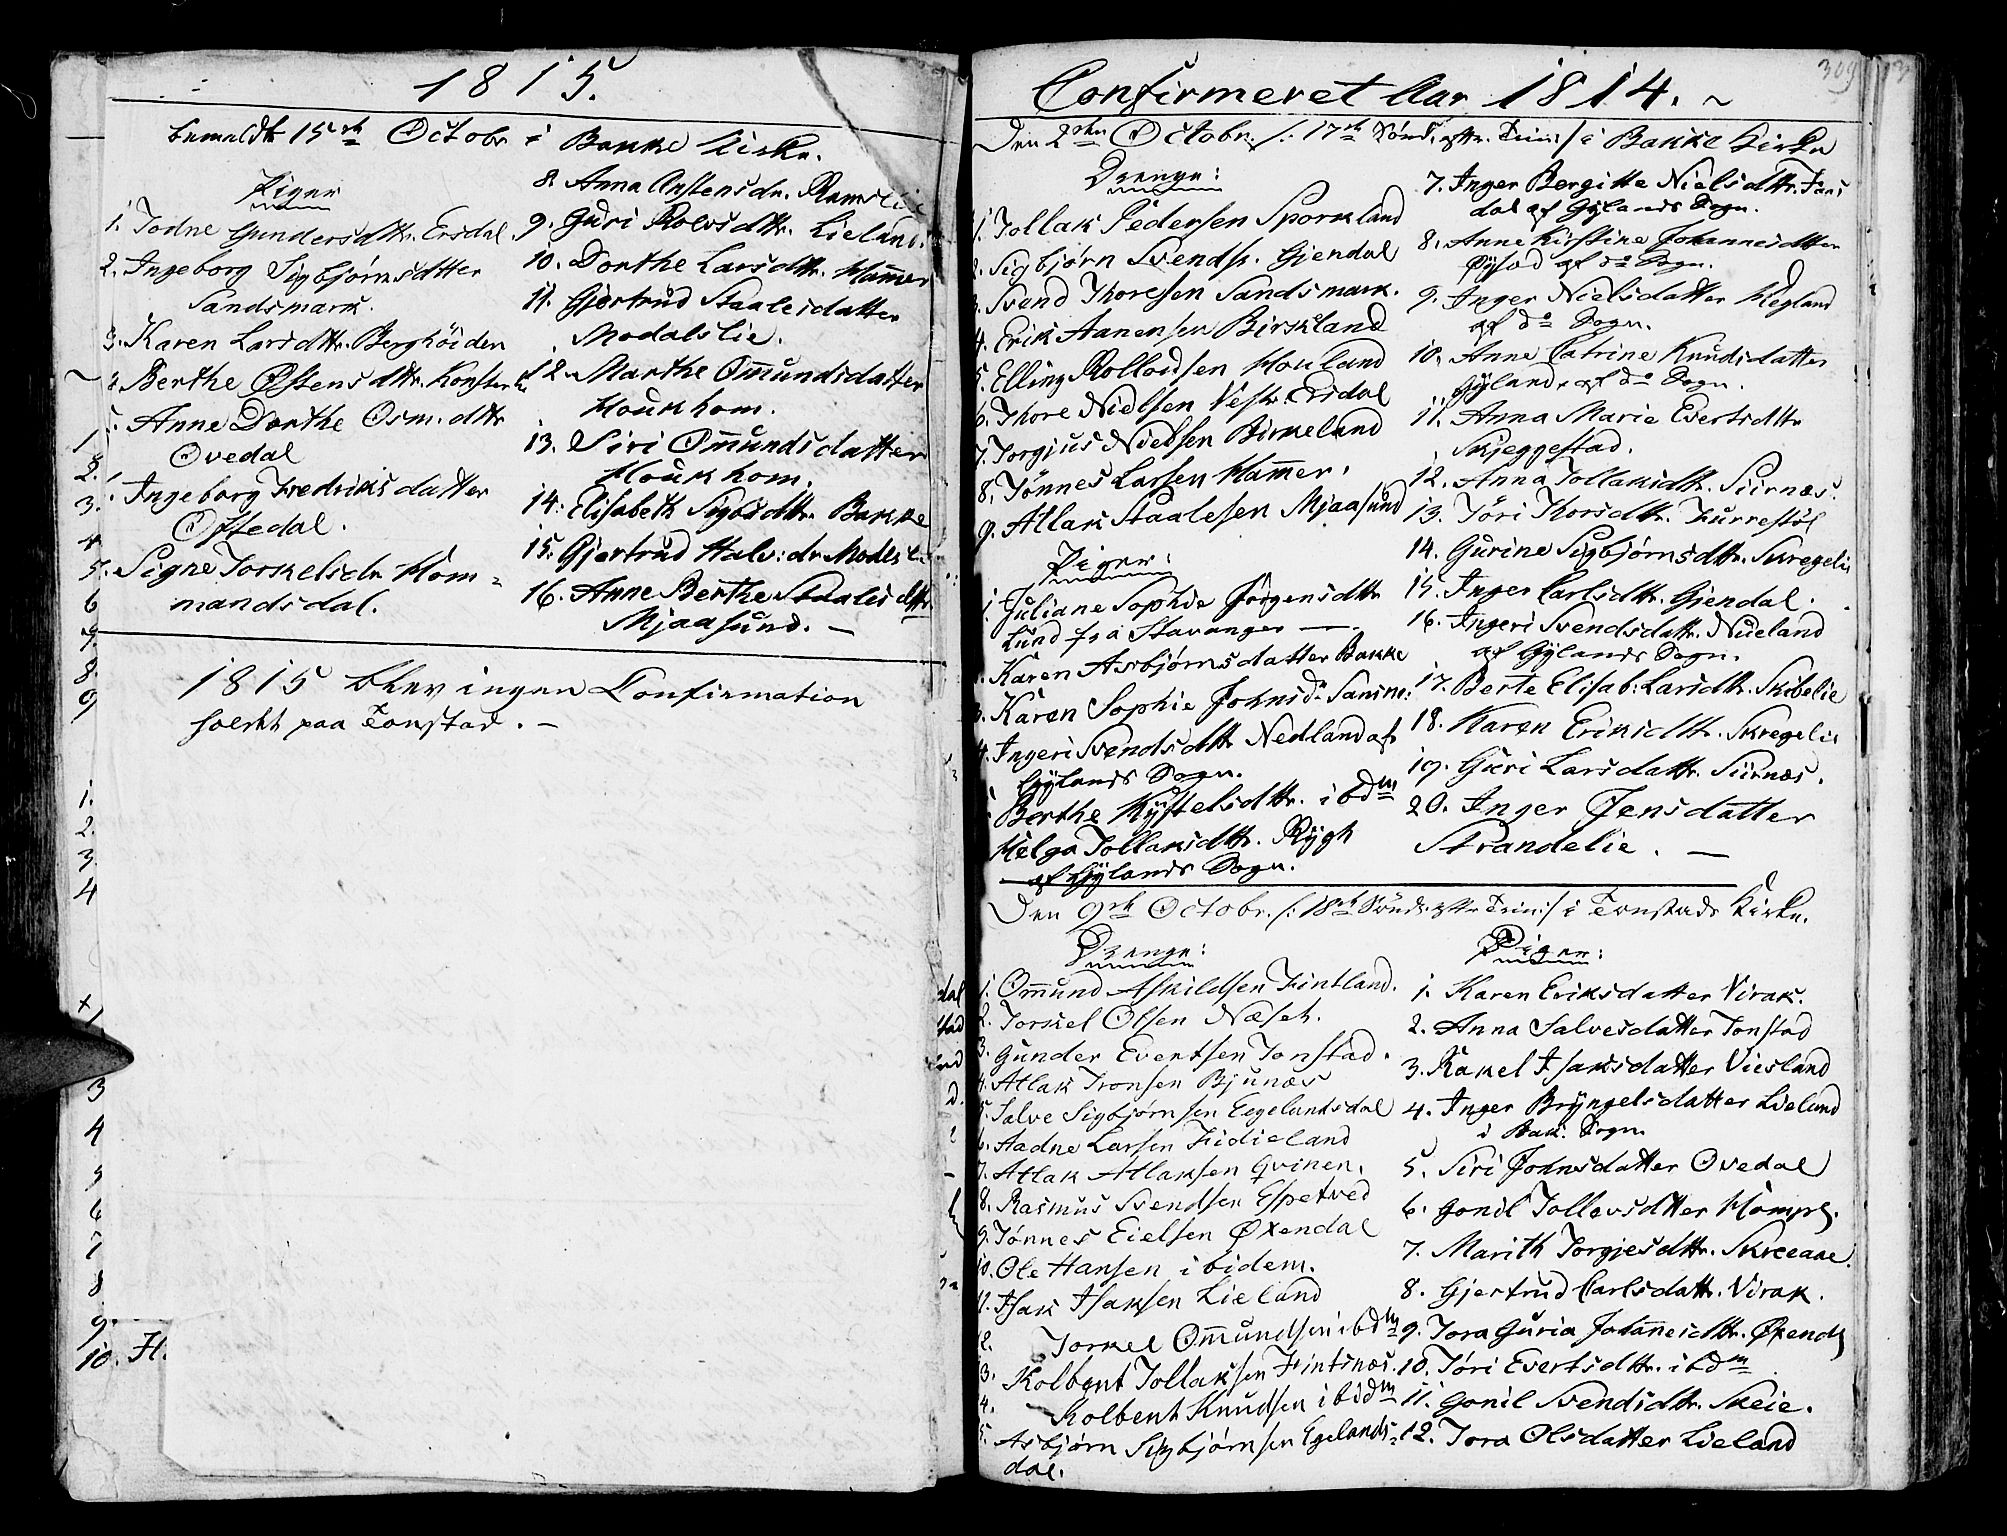 1815.
bemeldte 15de Octobr i Bakke Kirke.
Piger
1. Jodne Gundersdttr. Ersdal.
2. Ingeborg Sigbjørnsdtter
Sandsmark.
3. Karen Larsdttr. Berghöiden
Berthe Østensdttr.
Anne Dorthe Osm. dttr
Ovedal
Ingeborg Fredriksdatter
Oftedal.
Signe Torkelsdr Hom=
mandsdal.
8. Anna Anstensdr. Ramslie
9. Guri Rolvsdttr. Lieland.
10. Dorthe Larsdttr. Hammer
11. Gjertrud Staalesdatter
Modalslie.
12. Marthe Omundsdatter
Houkhom.
13. Siri Omundsdatter
Houkhom.
14. Elisabeth Sigbsdttr. Bakke
15. Gjertrud Halv: dr
16. Anne Berthe Staalesdttr
Mjaasund. —
1815 blev ingen Confirmation
holdt paa Tonstad. —
10. H.
309
Confirmeret Aar 1814. ~
Den 2den Octobr. /: 17de Sönd. eftr. Trin: / i Bakke Kirke
Drenge:
1. Tollak Pedersen Sporkland
2. Sigbjørn Svends. Gjendal
3. Svend Thorsen Sandsmark.
4. Erik Aanensen Birkeland
5. Elling Rollousen Houland
6. Thore Nielsen Vestr. Ersdal
7. Torgjus Nielsen Birkeland
8. Tönnes Larsen Hammer.
9. Atlak Staalesen Mjaasund
Piger:
1. Juliane Sophie Jörgensdttr
Lund fra Stavanger —
2. Karen Asbjørnsdatter Bakke
3. Karen Sophie Johnsdr
4. Ingeri Svendsdttr Nedland af
Gylands Sogn.
Berthe Kystelsdttr. ibdm
Helga Tollaksdttr. Rygh
af Gylands Sogn.
7. Inger Bergitte Nielsdttr.
dal af Gylands Sogn.
8. Anne Kirstine Johannesdtter
Øysæd af do Sogn.
9. Inger Nielsdatter Hegland
af do Sogn.
10. Anne Catrine Knudsdatter
Gyland, af do Sogn.
11. Anna Marie Evertsdttr
Skjeggestad.
12. Anna Tollaksdtr. Siirnæs.
13. Jöri Thorsdttr. Furrestöl
14. Gurine Sigbjørnsdttr. Skregelie
15. Inger Carlsdttr. Gjendal.
16. Ingeri Svendsdattr. Nueland
af Gylands Sogn.
17. Berte Elisab: Larsdttr. Skibelie
18. Karen Eriksdttr. Skregelie
19. Guri Larsdattr. Siirnæs.
20. Inger Jensdatter
Strandelie. —
Den 9de Octobr. /: 18de Sönd. eftr Trin: / i Tonstads Kirke.
Drenge:
1. Omund Askildsen Fintland.
2. Torkel Olsen Næset.
3. Gunder Evertsen Tonstad.
4. Atlak Tronsen Bjunæs
5. Salve Sigbjørnsen Egelandsdal
6. Aadne Larsen Fidieland
7. Atlak Atlaksen Qvinen.
8. Rasmus Svendsen Espetved
9. Tönnes Eielsen Øxendal
10. Ole Hansen ibidem.
11. Isak Isaksen Lieland
12. Torkel Omundsen ibdm
3. Kolbent Tollaksen Fintsnæs.
4. Kolbent Knudsen ibidm
5. Asbjørn Sigbjørnsen Egelands=
dal.
Piger:
1. Karen Eriksdatter Virak.
2. Anna Salvesdatter Tonstad
3. Rakel Isaksdatter Viesland
4. Inger Bryngelsdatter Lieland
i Bak. Sogn
5. Siri Johnsdatter Ovedal
6. Gonil Tollevsdtter Hompl.
7. Marith Torgjesdttr. Skreeaae.
8. Gjertrud Carlsdattr. Virak.
9. Tora Guria Johannesdttr. Øxendl
10. Jöri Evertsdttr. ibdm
11. Gonil Svendsdttr. Skeie.
12. Tora Olsdatter Lieland